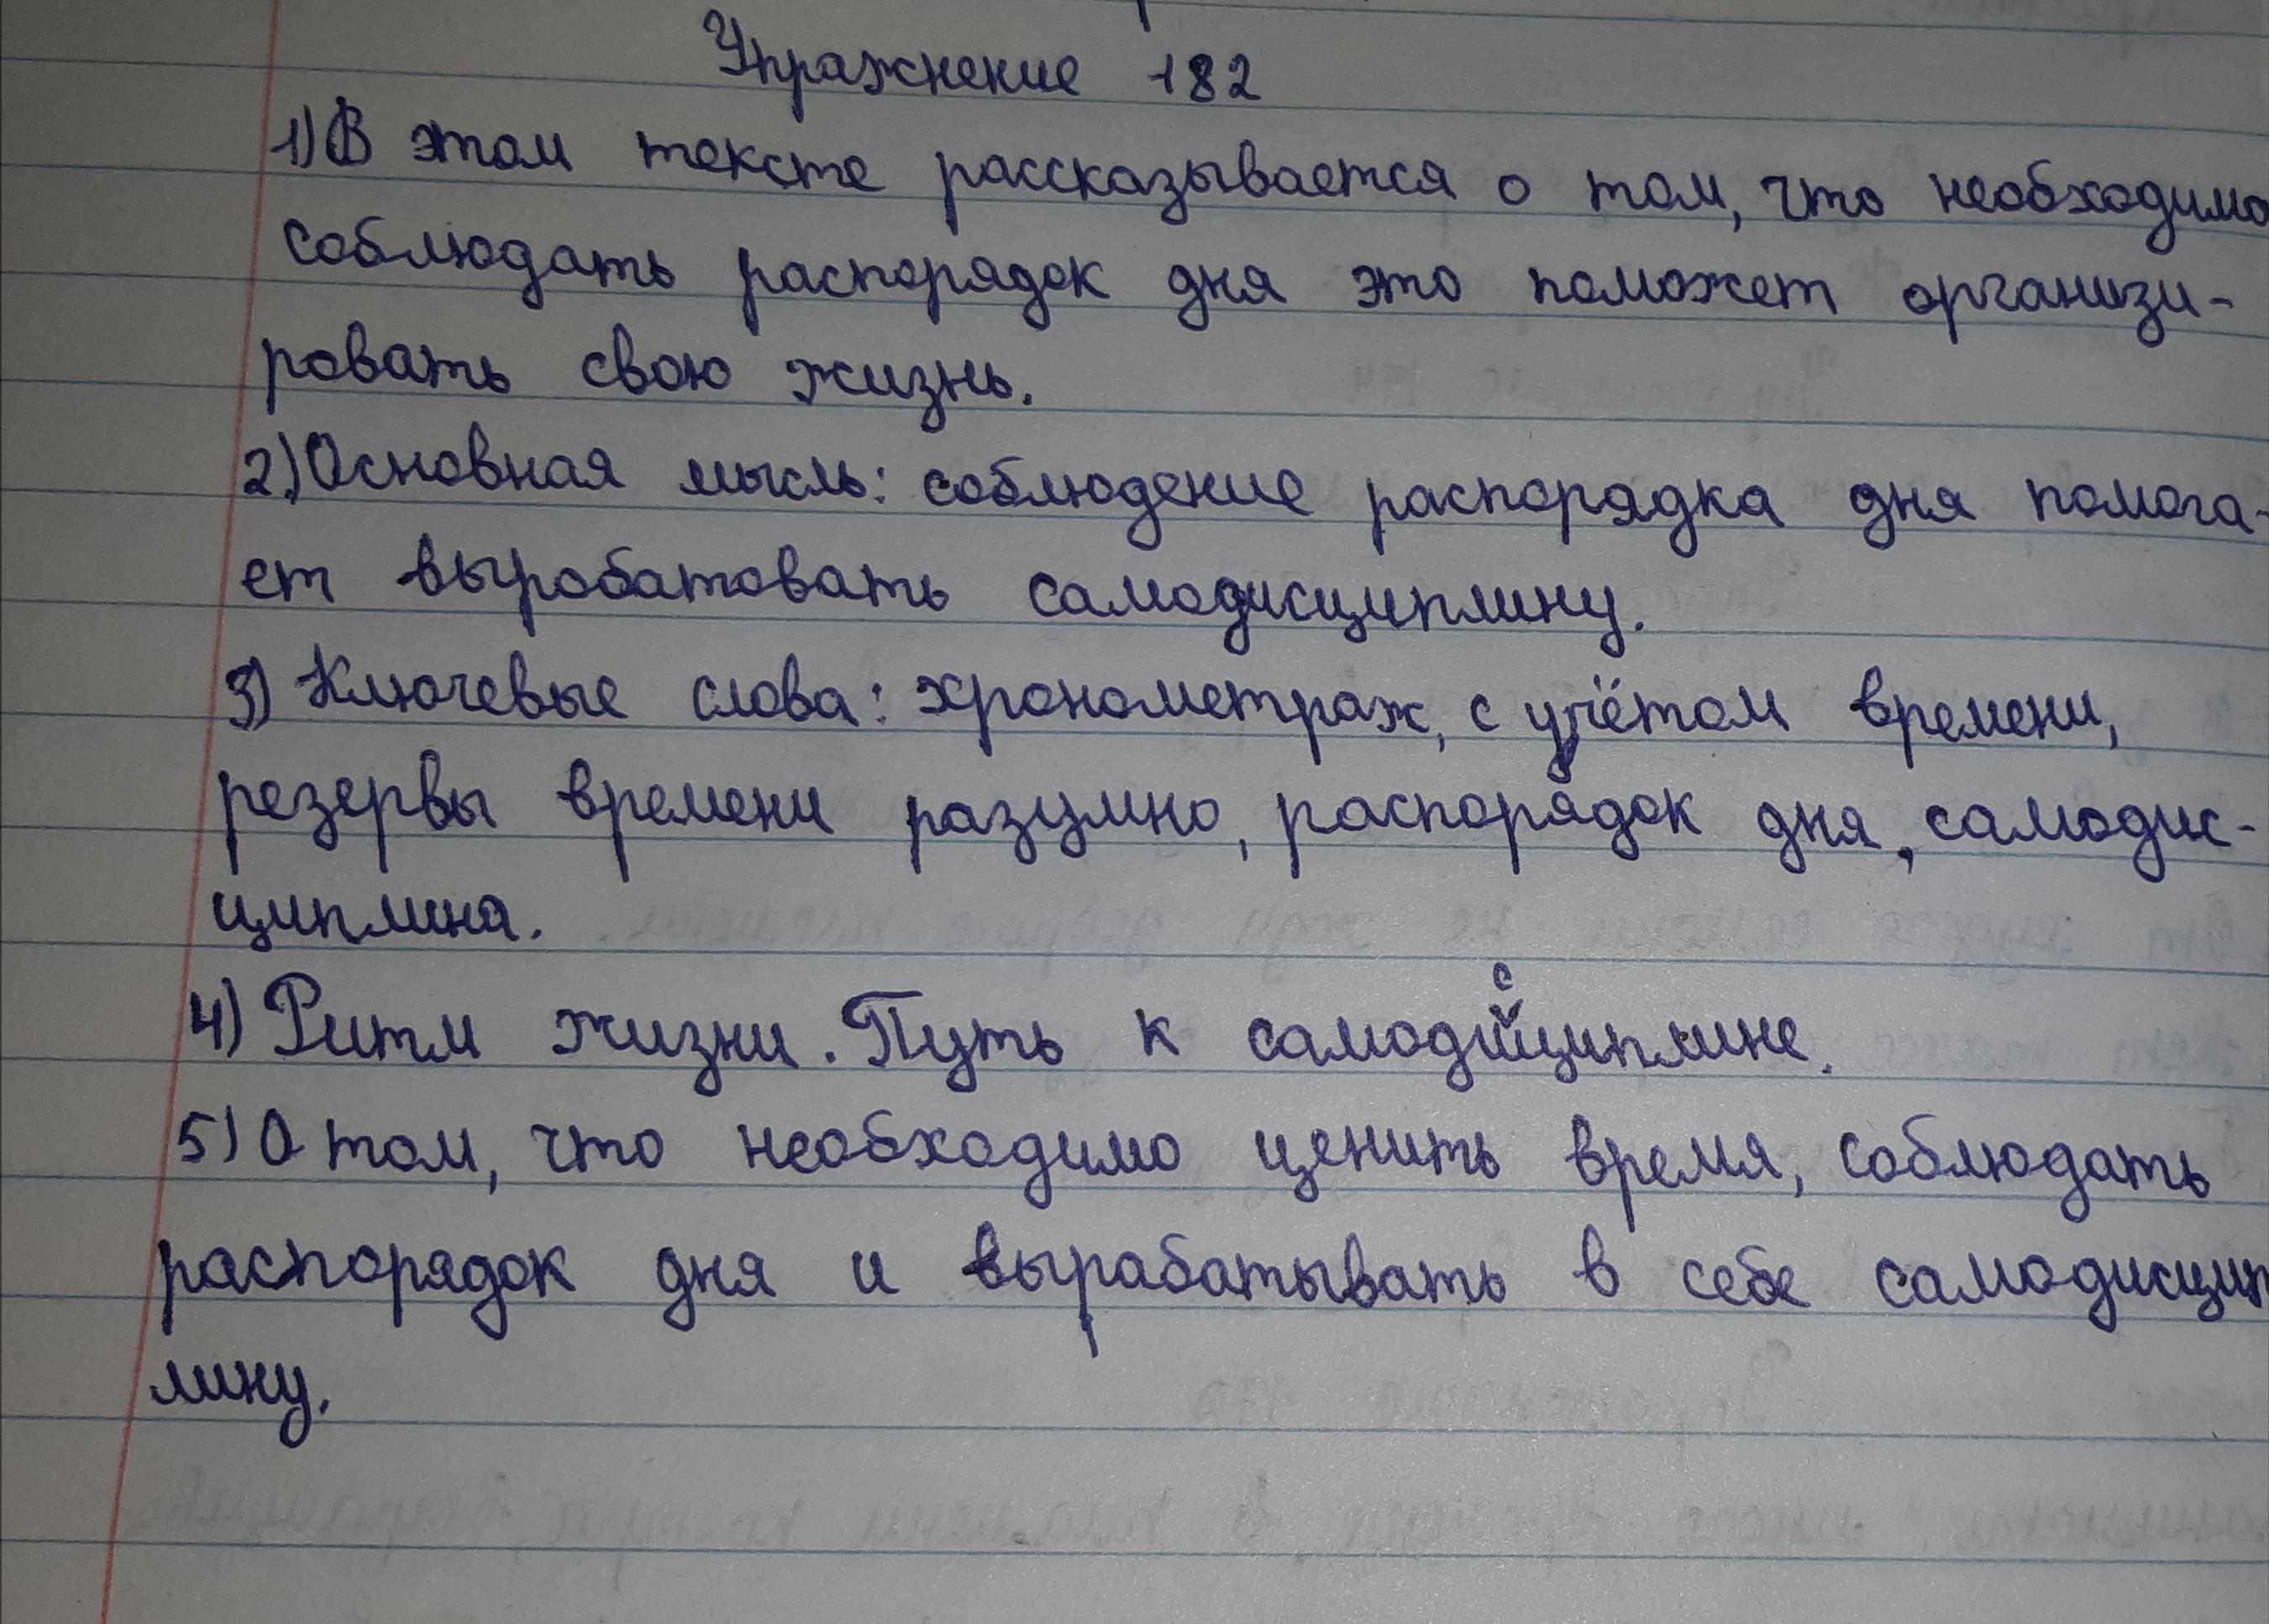 Упражнение 182
1) В этом тексте рассказывается о том, что необходимо
соблюдать распорядок дня это поможет организи-
ровать свою жизнь.
2) Основная мысль: соблюдение распорядка дня помога-
ет выробатовать самодисциплину.
3) Ключевые слова: хронометраж, с учётом времени,
резервы времени разумно, распорядок дня, самодис-
циплина.
4) Ритм жизни. Путь к самодисциплине.
5) О том, что необходимо ценить время, соблюдать
распорядок дня и вырабатывать в себе самодисцип
лину.